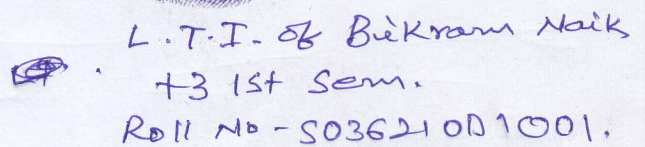 L.T.I. of Bikram Naik
+3 1st Sem.
Roll No - S03621OD1001.